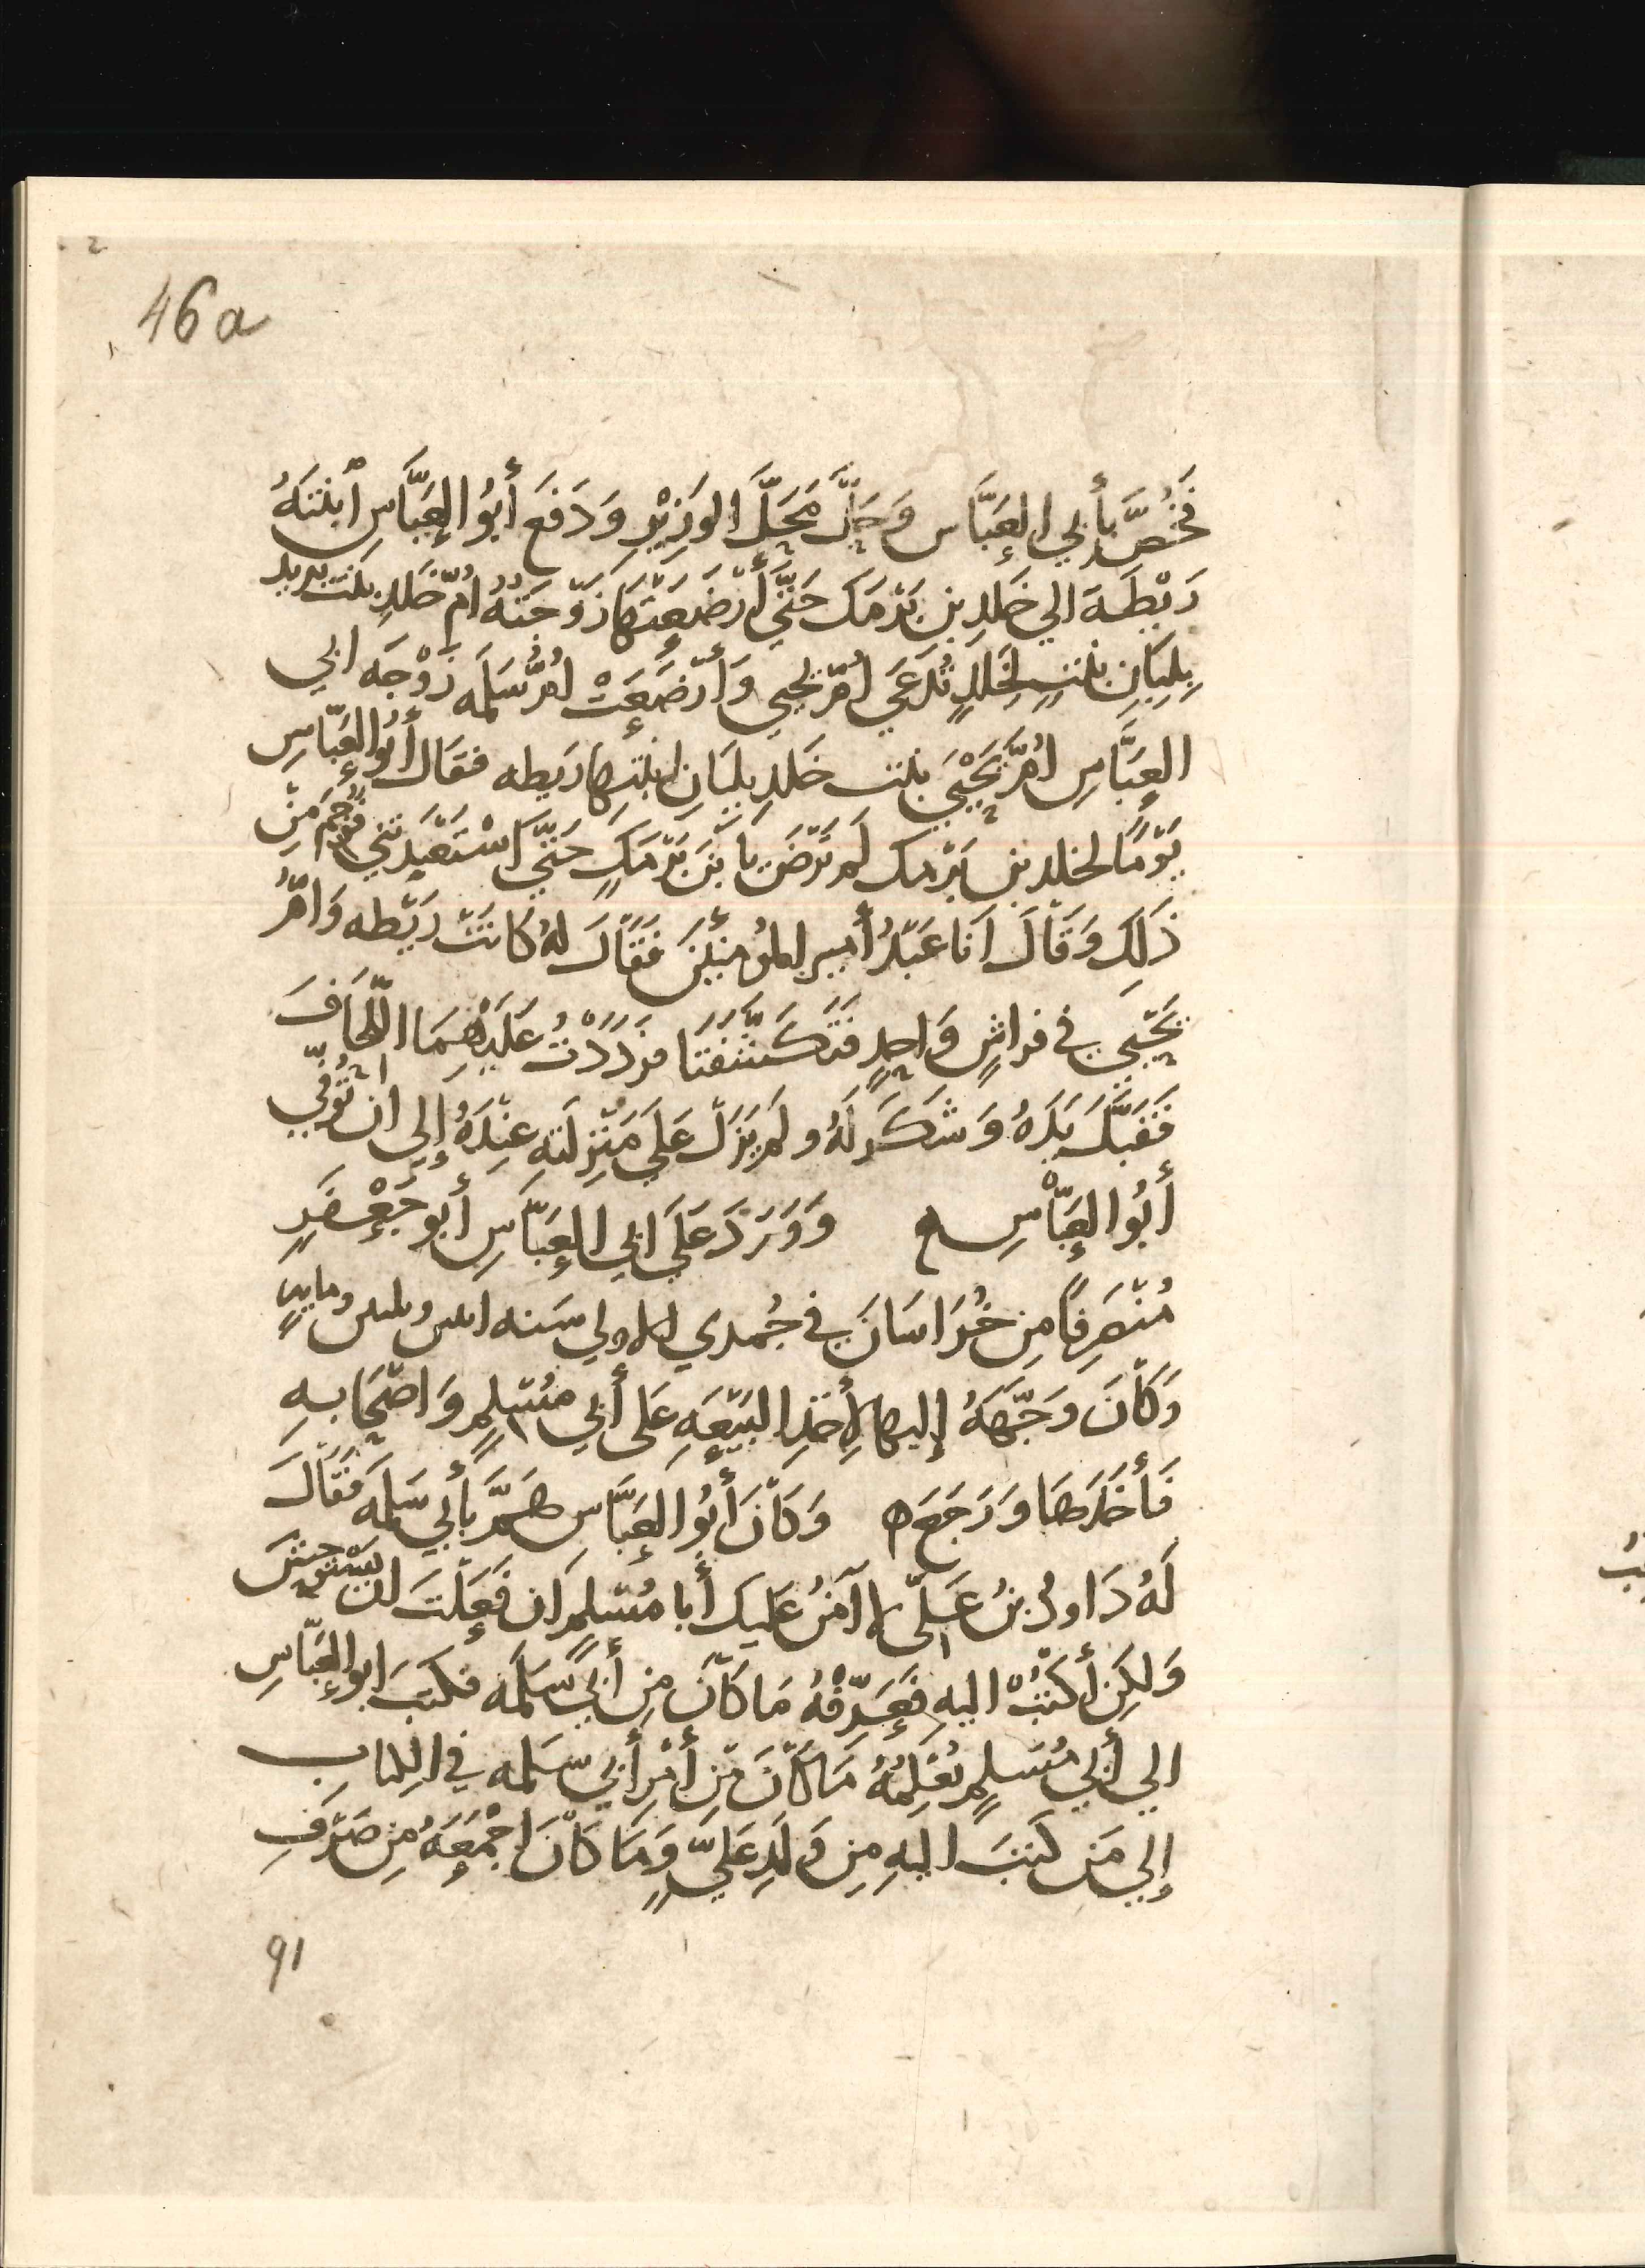 46a
فَخُصَّ بأَبي العَبَّاس وَحَلَّ مَحَلَّ الوَزِيْرِ وَدَفَعَ أَبُو العَبَّاسِ ابْنَتَهُ
رَيْطَةَ الي خَلدِ بن بَرْمَك حَتَّى أَرْضَعَتْهَا زَوْجَتُهُ أُمّ خَلدِ بنت يزيد
بِلِبَانِ بنتٍ لِخَلدٍ تُدْعَي أُمّ يحيي وَأَرْضَعَتْ أُمُّ سَلَمَه زَوْجَه ابي
العَبَّاسِ أُمَّ يَحْيَي بنت خَلدٍ بِلبَانِ ابنتِها رَيطه فقَال أَبُو العَبَّاسِ
يَوْمًا لخلدِ بن بَرْمك لم تَرْضَ يَا بْنَ بَرْمَكٍ حَتَّي اسْتَعْبَدتَني فَوَجَمَ مِنْ
ذَلِكَ وَقَالَ اَنَا عَبْدُ أَمير المُؤمنِيْنَ فَقَالَ لهُ كَانَتْ رَيْطه وَامُّ
يَحْيي في فراشٍ وَاحِدٍ فَتَكَشَّفَتَا فرَدَدْتُ عَلَيْهِمَا اللِّحَافَ
فَقَبَّلَ يَدَهُ وَشَكَرَ لَهُ ولم يَزَلْ عَلَي مَنْزِلَتهِ عِنْدَهُ إِلي ان تُوُفِّي
أَبُو العَبَّاسِ ه وَوَرَدَ عَلَي ابي العَبَّاسِ أَبو جَعْفَرٍ
مُنْصَرِفًا مِن خُرَاسَانَ في جُمدي الاولي سَنه اثنين وثلثين ومايةٍ
وَكَانَ وَجَّهَهُ إليها لِأَخذِ البَيْعَهِ عَلى أَبي مُسْلِمٍ وَاصْحَابهِ
فَأَخَذَها وَرَجَعَ ه وَكَانَ أَبُو العَبَّاس هَمَّ بأَبي سَلَمَه فَقَالَ
لَهُ دَاودُ بنُ عَلَيّ لا آمَنُ عَليك أَبا مُسْلِمٍ ان فَعَلتَ ان يَسْتَوحِشَ
وَلكِن أكتُبْ اليهِ فَعَرِّفْهُ مَا كَانَ مِن أَبي سَلَمَه فكَتَبَ ابو العَبَّاسِ
الي أَبي مُسْلِمٍ يُعْلِمُهُ مَا كَانَ مِن أَمْرِ أَبي سَلمه في الكتاب
إلي مَن كَتَبَ اليهِ مِن وَلَدِ عَليٍّ وَمَا كَانَ اجْمَعَهُ مِن صَرْفِ
91